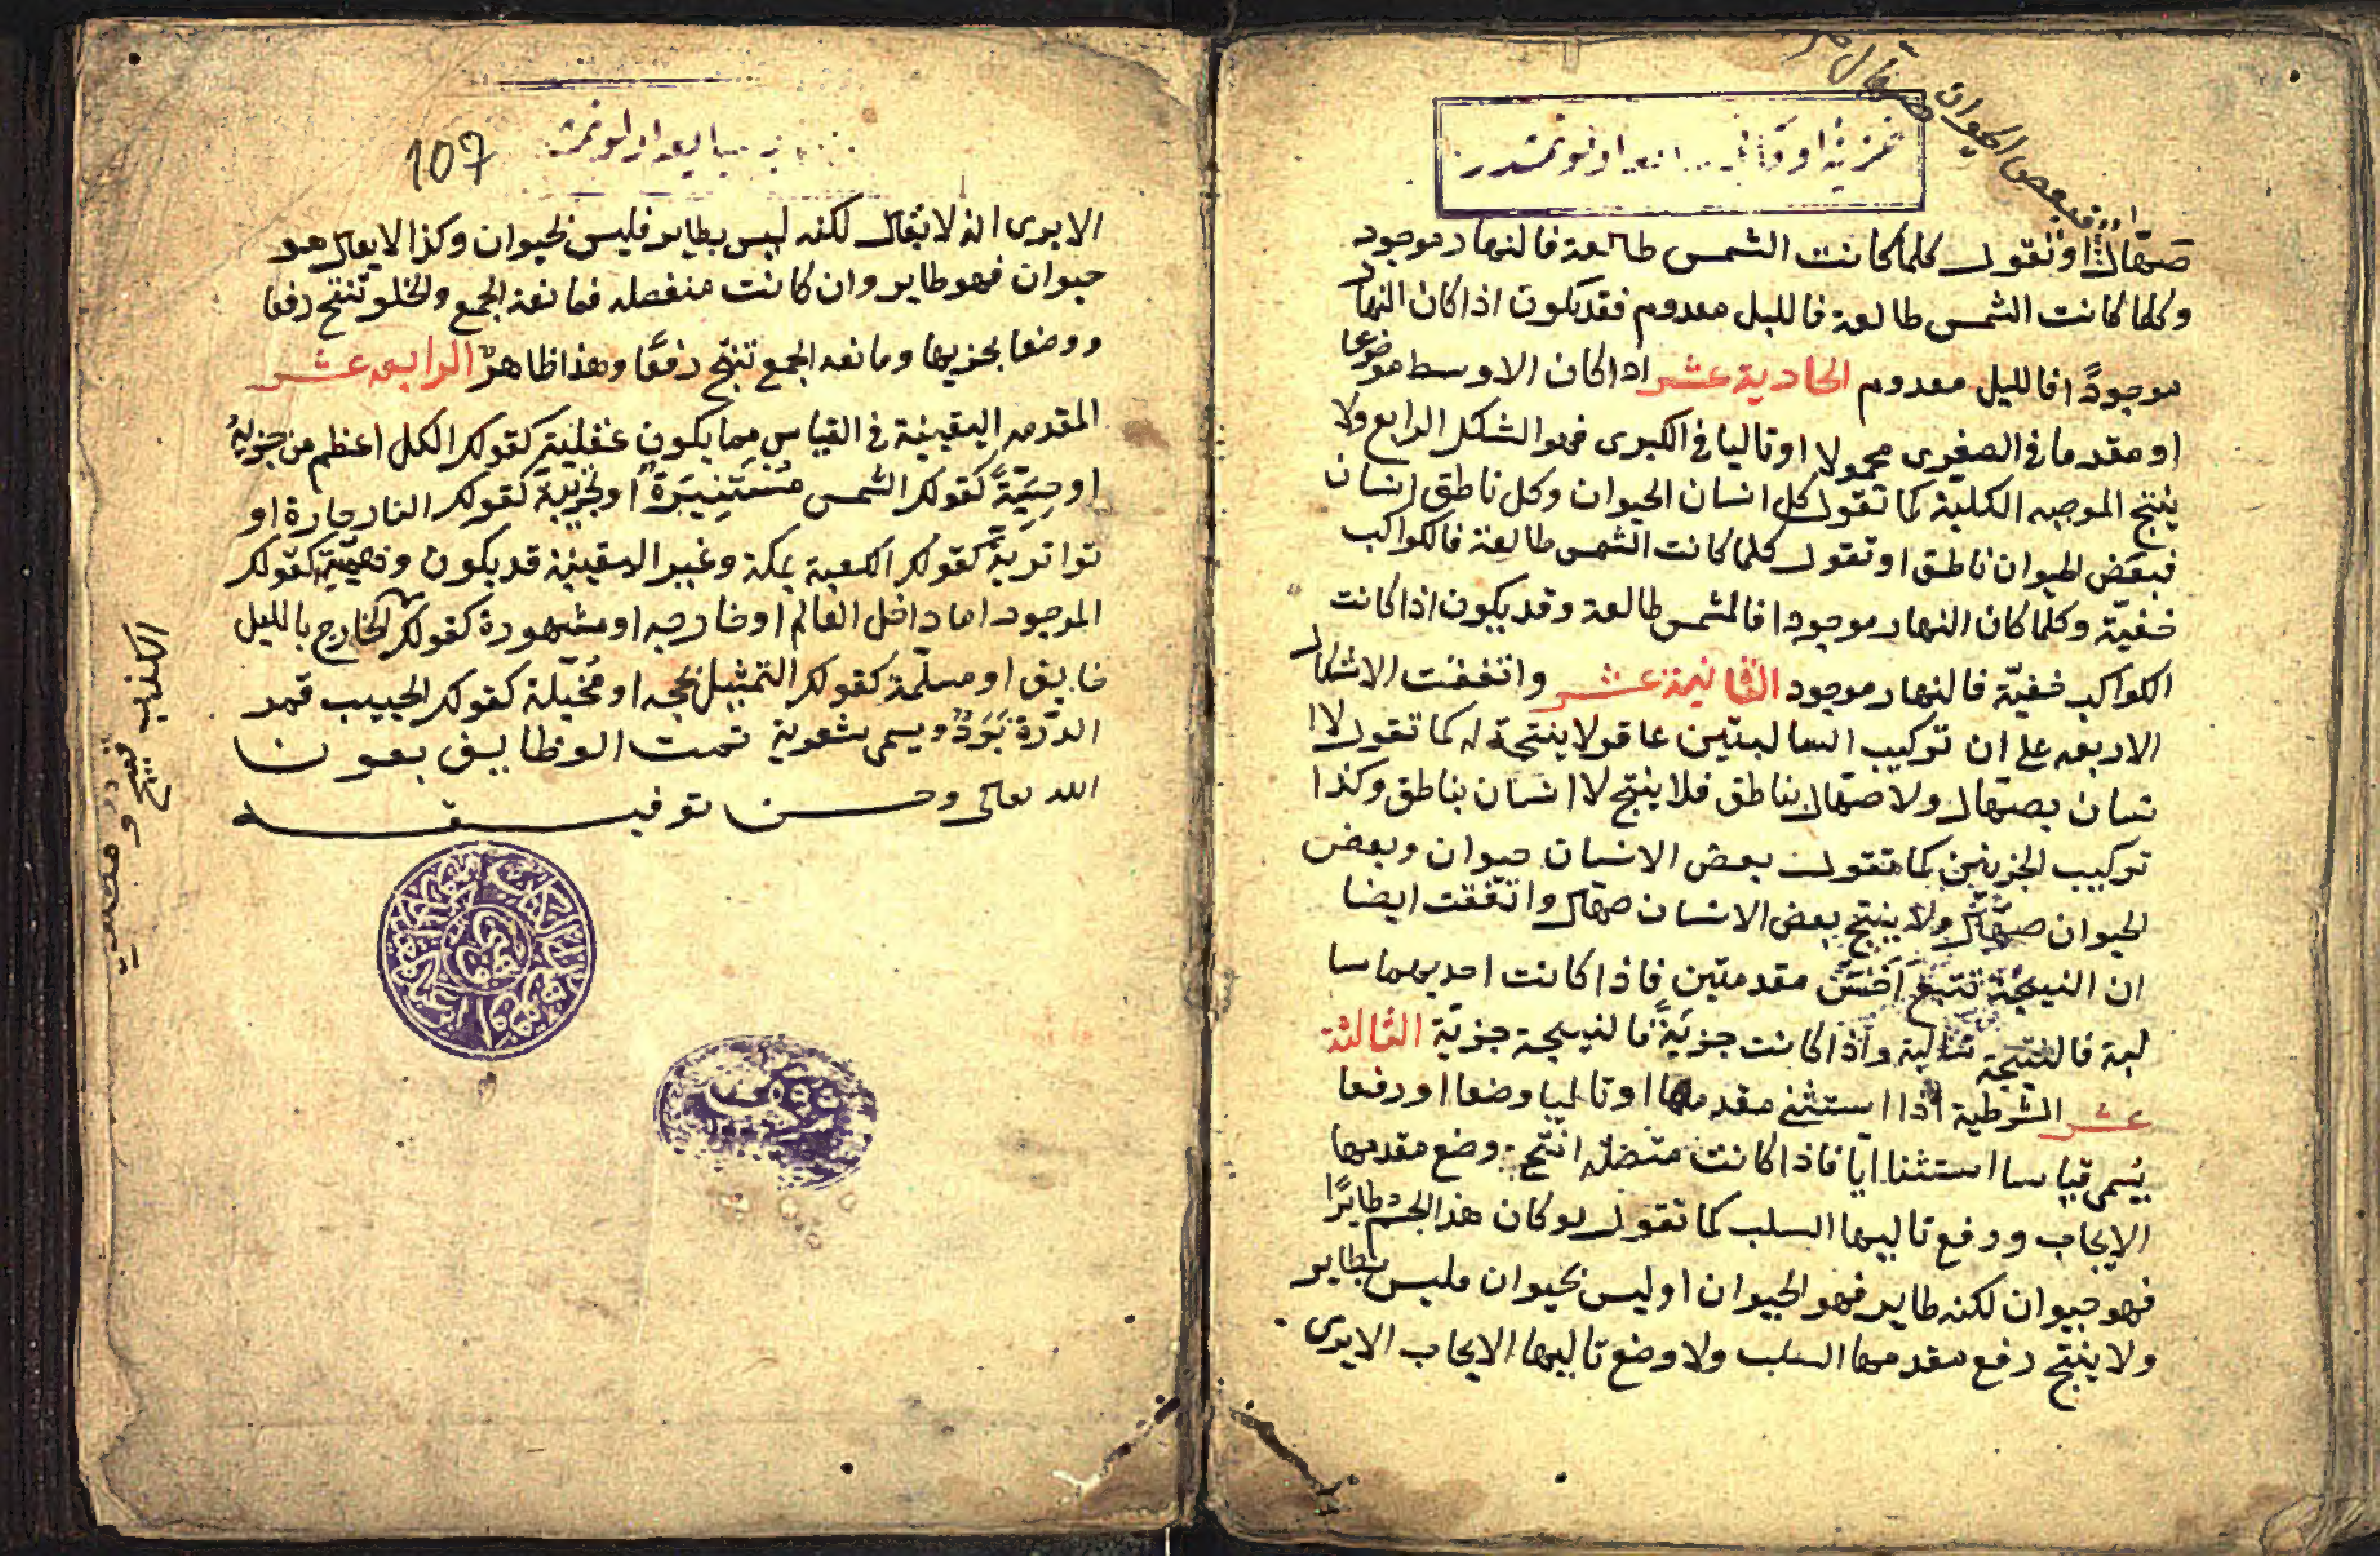 فبعض الحيوان
صهال او نقول كلما كانت الشمس طالعة فالنهار موجود
وكلما كانت الشمس طالعة فالليل معدوم فقد يكون اذا كان النهار
موجودًا فالليل معدوم الحادية عشر اذا كان الاوسط موضوعا
او مقدما في الصغرى محمولا او تاليا في الكبرى فهو الشكل الرابع ولا
ينتج الموجبه الكلية كما تقول كل انسان الحيوان وكل ناطق انسان
فبعض الحيوان ناطق او تقول كلما كانت الشمس طالعة فالكواكب
خفيّة وكلما كان النهار موجودا فالشمس طالعة وقد يكون اذا كانت
الكواكب خفيّة فالنهار موجود الثانية عشر واتففت الاشكال
الاربعه على ان تركيب السالبتين عاقر لا ينتجة له كما تقول لا ا
نسان بصهال ولا صهال بناطق فلا ينتج لا انسان بناطق وكذا
تركيب الجزيتين كما تقول بعض الانسان حيوان وبعض
الحيوان صهال ولا ينتج بعض الانسان صهال واتفقت ايضا
ان النتيجة تتبع اخسّ مقدمتين فاذا كانت احديهما سا
لبة فالنتيجة سالبة واذا كانت جزيّةً فالنتيجة جزيّة الثالثة
عشر الشرطية اذا استثنى مقدمها او تاليا وضعا او رفعا
يسمى قياسا استثنا ايا فاذا كانت متصله انتج وضع مقدمها
الايجاب ورفع تاليها السلب كما تقول لو كان هذا الجسم طايرًا
فهو حيوان لكنه طاير فهو الحيوان او ليس بحيوان فليس بطاير
ولا ينتج رفع مقدمها السلب ولا وضع تاليها الايجاب الايرى
107
الايرى انه لا يقال لكنه ليس بطاير فليس بحيوان وكذا لا يقال هو
حيوان فهو طاير وان كانت منفصله فمانعة الجمع والخلو تنتج رفعا
ووضعا بجزيها ومانعه الجمع تنتج رفعًا وهذا ظاهرٌ الرابعه عشر
المقدمه اليقينية في القياس مما يكون عقلية كقولك الكل اعظم من جزيهِ
او حِسّيّةً كقولك الشمس مُسْتَنِيرَةٌ او تجزيبيّة كقولك النار حارة او
تواتريّةً كقولك الكعبة بمكة وغير اليقينية قد يكون وهميّة كقولك
الموجود اما داخل العالم او خارجه او مشهورة كقولك الخارج بالليل
خايق او مسلّمة كقولك التمثيل بحجه او مُخيّلة كقولك الحبيب قمر
الدّرة بَرَدٌ ويسمى شعرية تمت الوظايف بعون
الله تعالى وحسن توفيقه
الكذب قبيح